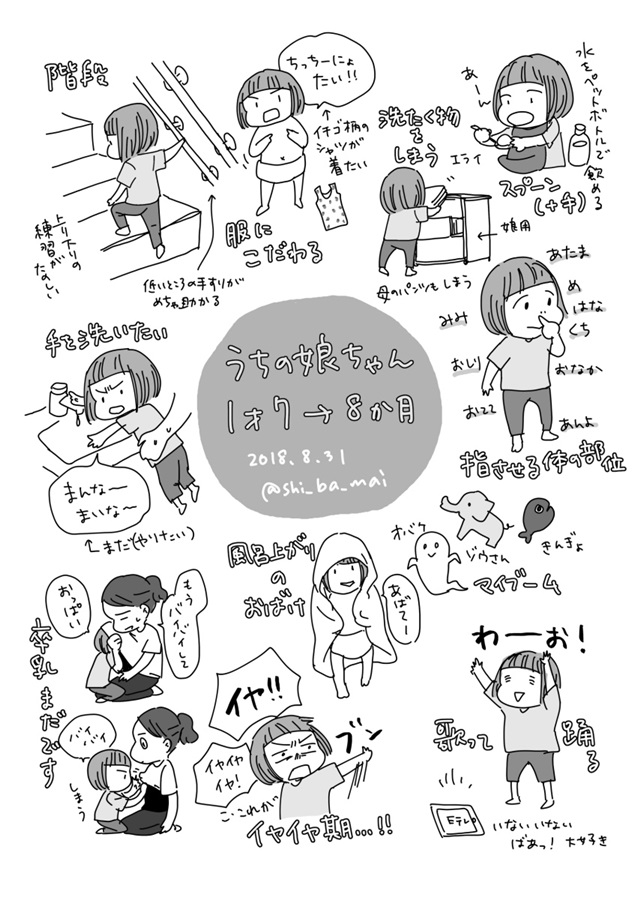 階段
上り下りの
練習が
たのしい
低いところの手すりが
めちゃ助かる
ちっちーにょ
たい!!
イチゴ柄の
シャツが
着たい
服に
こだわる
あーん
水をペットボトルで
飲める
スプーン
(+手)
洗たく物
を
しまう
エライ
娘用
母のパンツもしまう
手を洗いたい
まんな〜
まいな〜
まだ(やりたい)
うちの娘ちゃん
1才7→8か月
2018.8.31
@shi_ba_mai
あたま
め
はな
くち
みみ
おしり
おなか
おてて
あんよ
指させる体の部位
オバケ
ゾウさん
きんぎょ
マイブーム
風呂上がり
の
おばけ
あばてー
おっぱい
もう
バイバイして
卒乳まだです
バイバイ
しまう
イヤ!!
イヤイヤ
イヤ!
ブン
こ・これが
イヤイヤ期...!!
わーお!
歌って
踊る
Eテレ
いないいない
ばぁっ!大好き